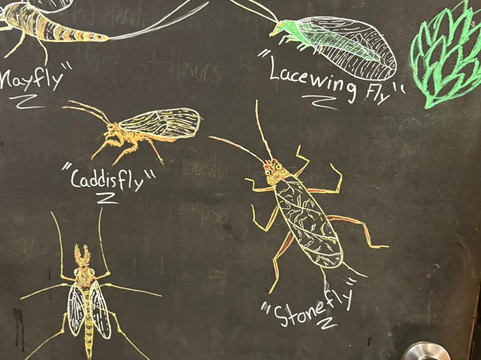 "Mayfly"
"Lacewing Fly"
"Caddisfly"
"Stonefly"